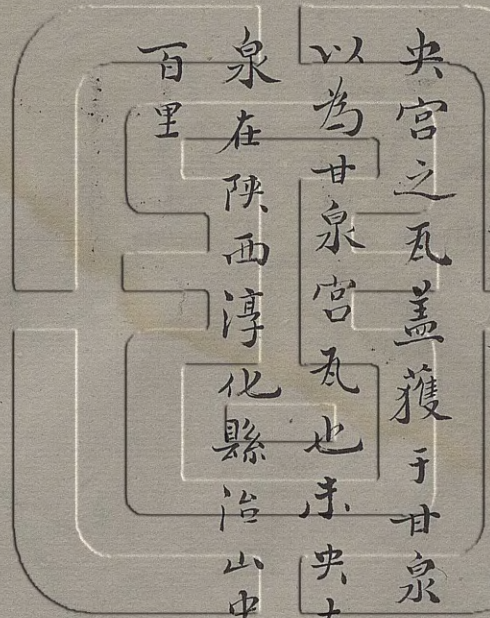 央宫之瓦盖獲于甘泉
以為甘泉宫瓦也未央
泉在陝西淳化縣治山中
百里